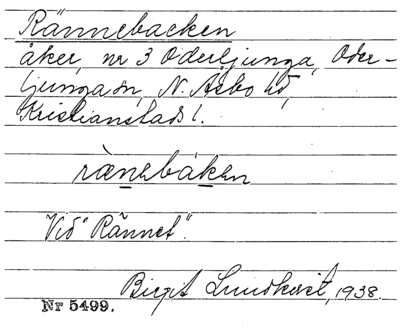 Rännebacken
åker, nr 3 Oderljunga, Oder-
ljunga sn, N. Åsbo hd,
Kristianstads l.
rænebaken
Vid "Rännet".
Birgit Lundkvist, 1938.
Nr 5499.